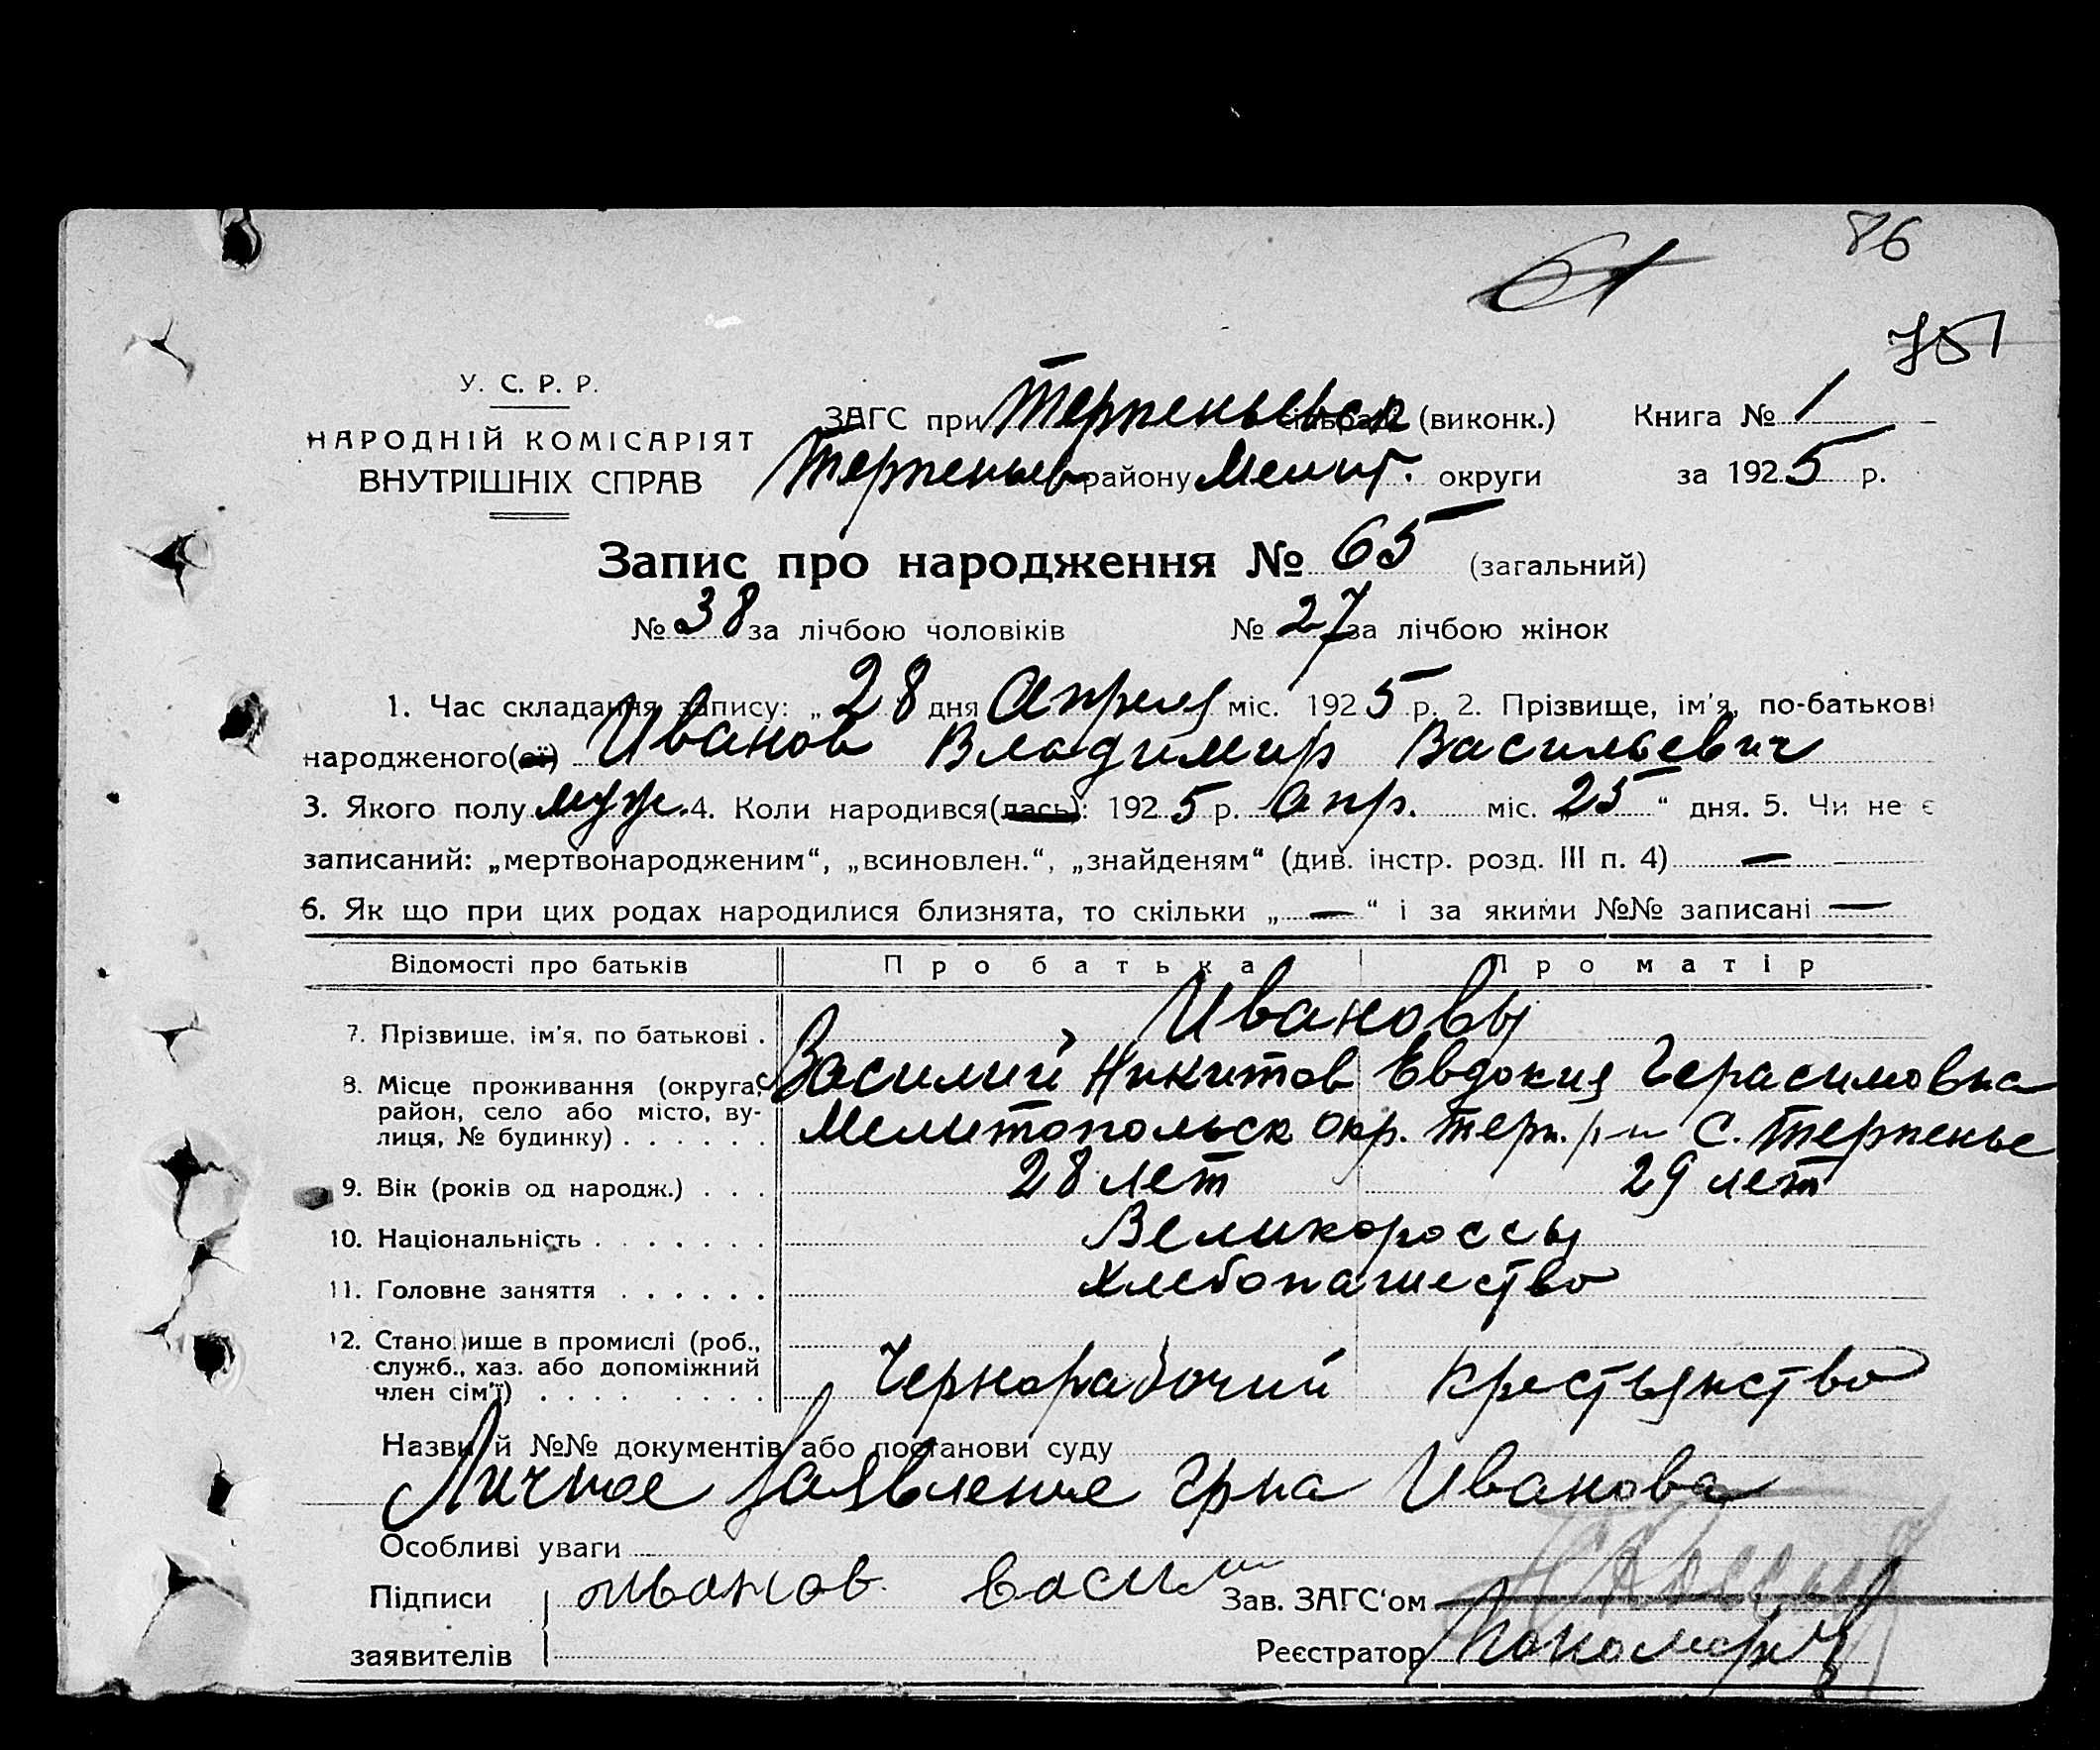 86
61
751
У. С. Р. Р.
НАРОДНІЙ КОМІСАРІЯТ
ВНУТРІШНІХ СПРАВ
ЗАГС при Терпеньевск (виконк.) Книга № 1
Терпеньев району Мелит. округи за 1925 р.
Запис про народження № 65 (загальний)
№ 38 за лічбою чоловіків № 27 за лічбою жінок
1. Час складання запису: „28 дня Апреля міс. 1925 р. 2. Прізвище, ім'я, по-батькові
народженого(ої) Иванов Владимир Васильевич
3. Якого полу муж. 4. Коли народився(лась): 1925 р. Апр. міс. „25“ дня. 5. Чи не є
записаний: „мертвонародженим“, „всиновлен.“, „знайденям“ (див. інстр. розд. III п. 4) —
6. Як що при цих родах народилися близнята, то скільки „—“ і за якими №№ записані —
Відомості про батьків Про батька Про матір
7. Прізвище, ім'я, по батькові . Ивановы
Василий Никитов Евдокия Герасимовна
8. Місце проживання (округа,
район, село або місто, ву-
лиця, № будинку) . . . . . . Мелитопольск окр. Терп. р-н С. Терпенье
9. Вік (років од народж.) . . . 28 лет 29 лет
10. Національність . . . . . . . Великороссы
11. Головне заняття . . . . . . Хлебопашество
12. Становище в промислі (роб.,
служб., хаз. або допоміжний
член сім'ї) . . . . . . . . . Чернорабочий Крестьянство
Назви й №№ документів або постанови суду
Личное заявление гр-на Иванова
Особливі уваги
Підписи Иванов Васили Зав. ЗАГС'ом
заявителів Реєстратор